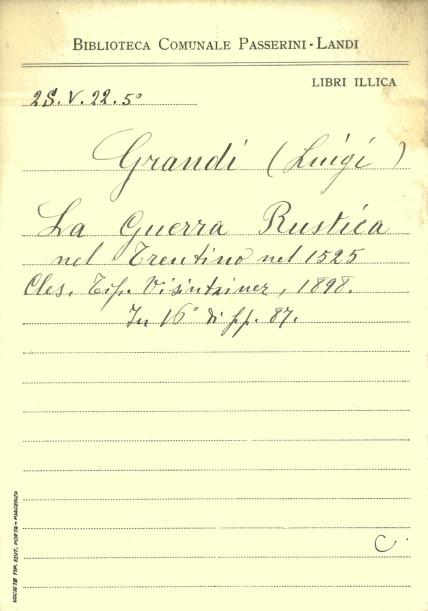 BIBLIOTECA COMUNALE PASSERINI-LANDI
LIBRI ILLICA
2S. V. 22. 5°
Grandi (Luigi)
La Guerra Rustica
nel Trentino nel 1525
Cles. Tip. Visintainer, 1898.
In 16° di pp. 87.
C.
SOCIETÀ TIP. EDIT. PORTA - PIACENZA